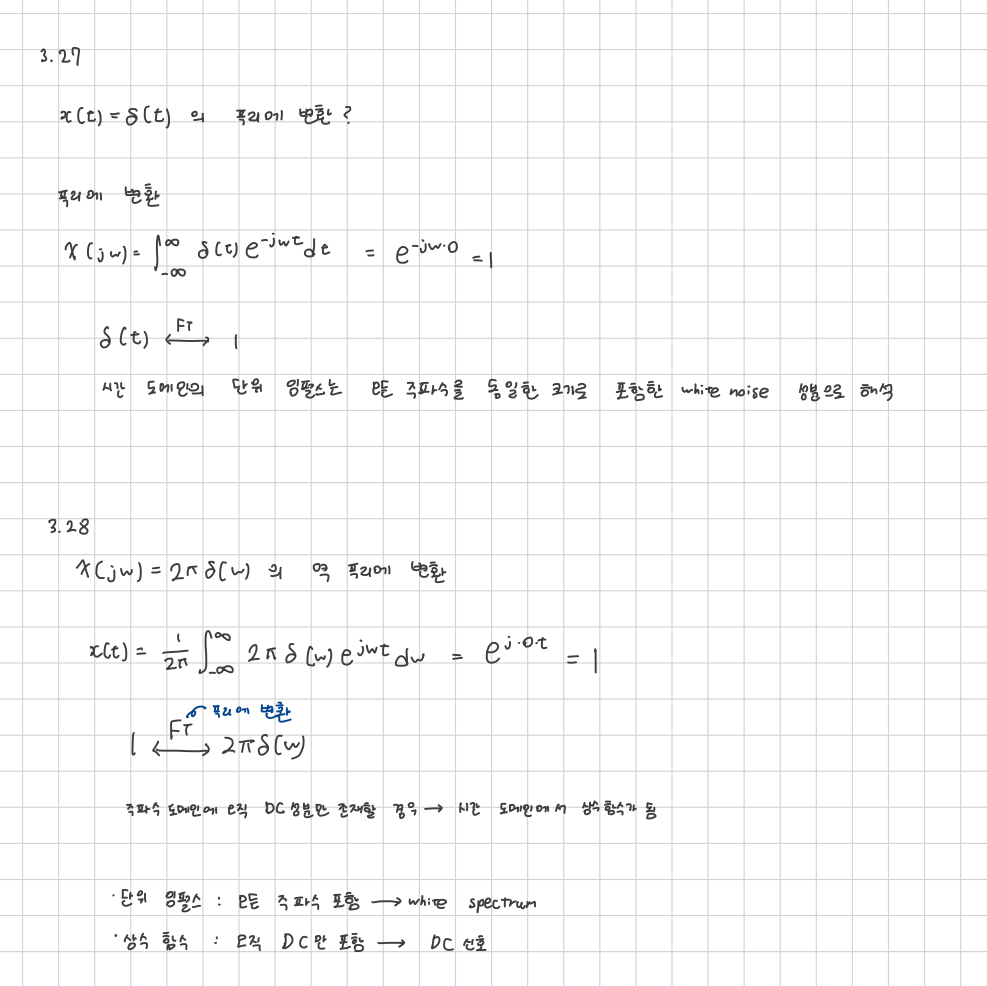 3.27
x(t) = δ(t) 의 푸리에 변환?
푸리에 변환
X(jw) = ∫_{-∞}^{∞} δ(t) e^{-jwt} dt = e^{-jw·0} = 1
δ(t) ←FT→ 1
시간 도메인의 단위 임펄스는 모든 주파수를 동일한 크기로 포함한 white noise 성분으로 해석
3.28
X(jw) = 2π δ(w) 의 역 푸리에 변환
x(t) = 1/2π ∫_{-∞}^{∞} 2π δ(w) e^{jwt} dw = e^{j·0·t} = 1
푸리에 변환
1 ←FT→ 2πδ(w)
주파수 도메인에 오직 DC 성분만 존재할 경우 → 시간 도메인에서 상수 함수가 됨
· 단위 임펄스 : 모든 주파수 포함 → white spectrum
· 상수 함수 : 오직 DC만 포함 → DC 신호